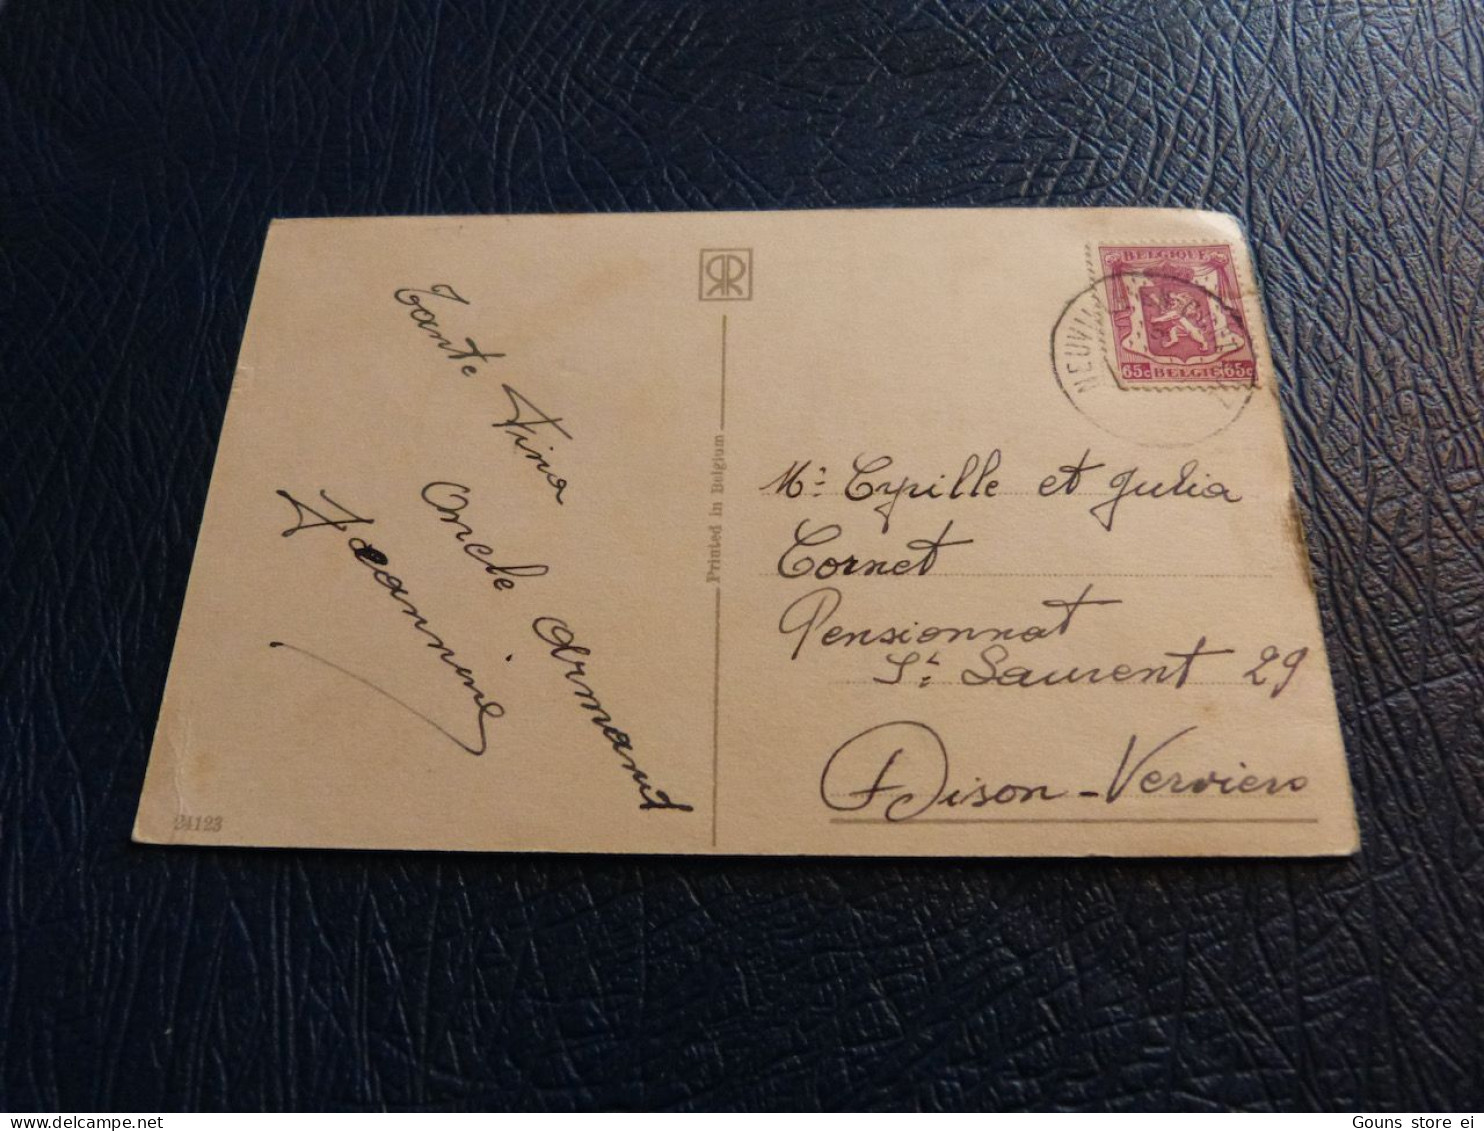 Tante Nina
Oncle Armand
Jeannine
24123
Printed in Belgium
BELGIQUE
65c BELGIE 65c
Mr Cyrille et Julia
Cornet
Pensionnat
St Laurent 29
Dison - Verviers
Gouns store ei